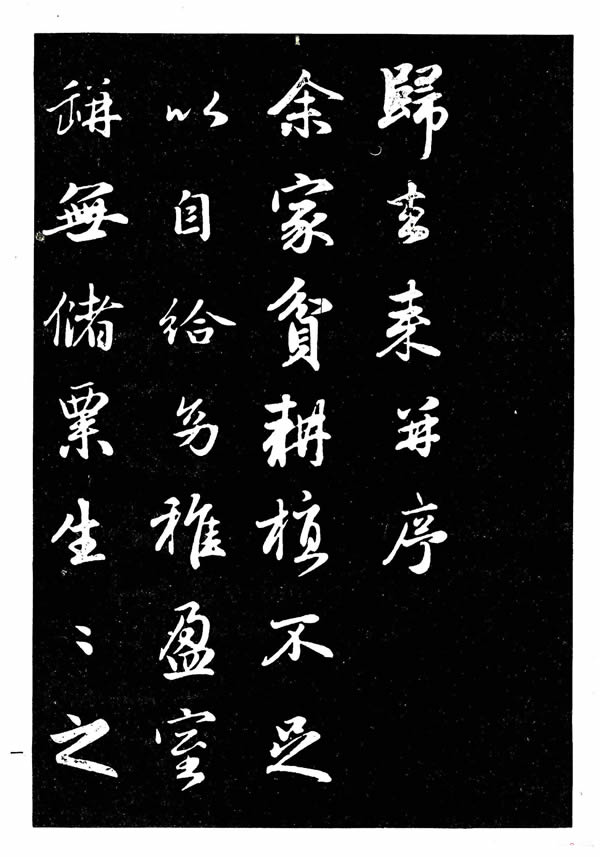 歸去来並序
余家貧耕植不足
以自給㓜稚盈室
缾無儲粟生〻之
一